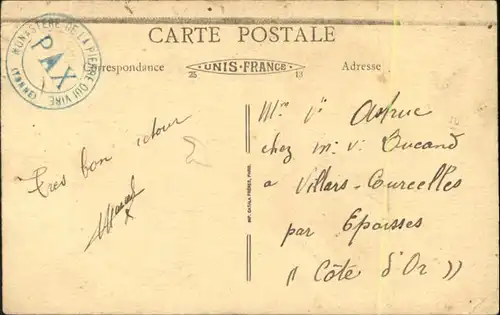 MONASTÈRE DE LA PIERRE QUI VIRE
(YONNE)
PAX
CARTE POSTALE
Correspondance
UNIS-FRANCE
25 13
Adresse
Très bon retour
IMP. CATALA FRÈRES, PARIS
Mm Vve Astruc
chez m. V. Bucand
a Villars-Courcelles
par Epoisses
(( Côte d'Or ))